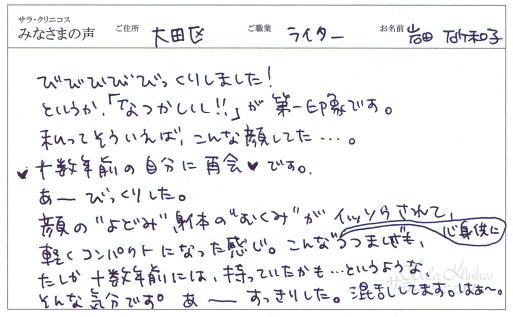 サラ・クリニコス
みなさまの声 ご住所 大田区 ご職業 ライター お名前 岩田 砂和子
びびびびびっくりしました!
というか、「なつかしいし!!」が第一印象です。
私ってそういえば、こんな顔してた…。
♥十数年前の自分に再会♥です。
あ〜びっくりした。
顔の“よどみ”身体の“むくみ”がイッソウされて、
心身供に
軽くコンパクトになった感じ。こんな“うつまぜも、
たしか十数年前には、持っていたかも…というような
そんな気分です。あ〜すっきりした。混乱してます。はぁ〜。